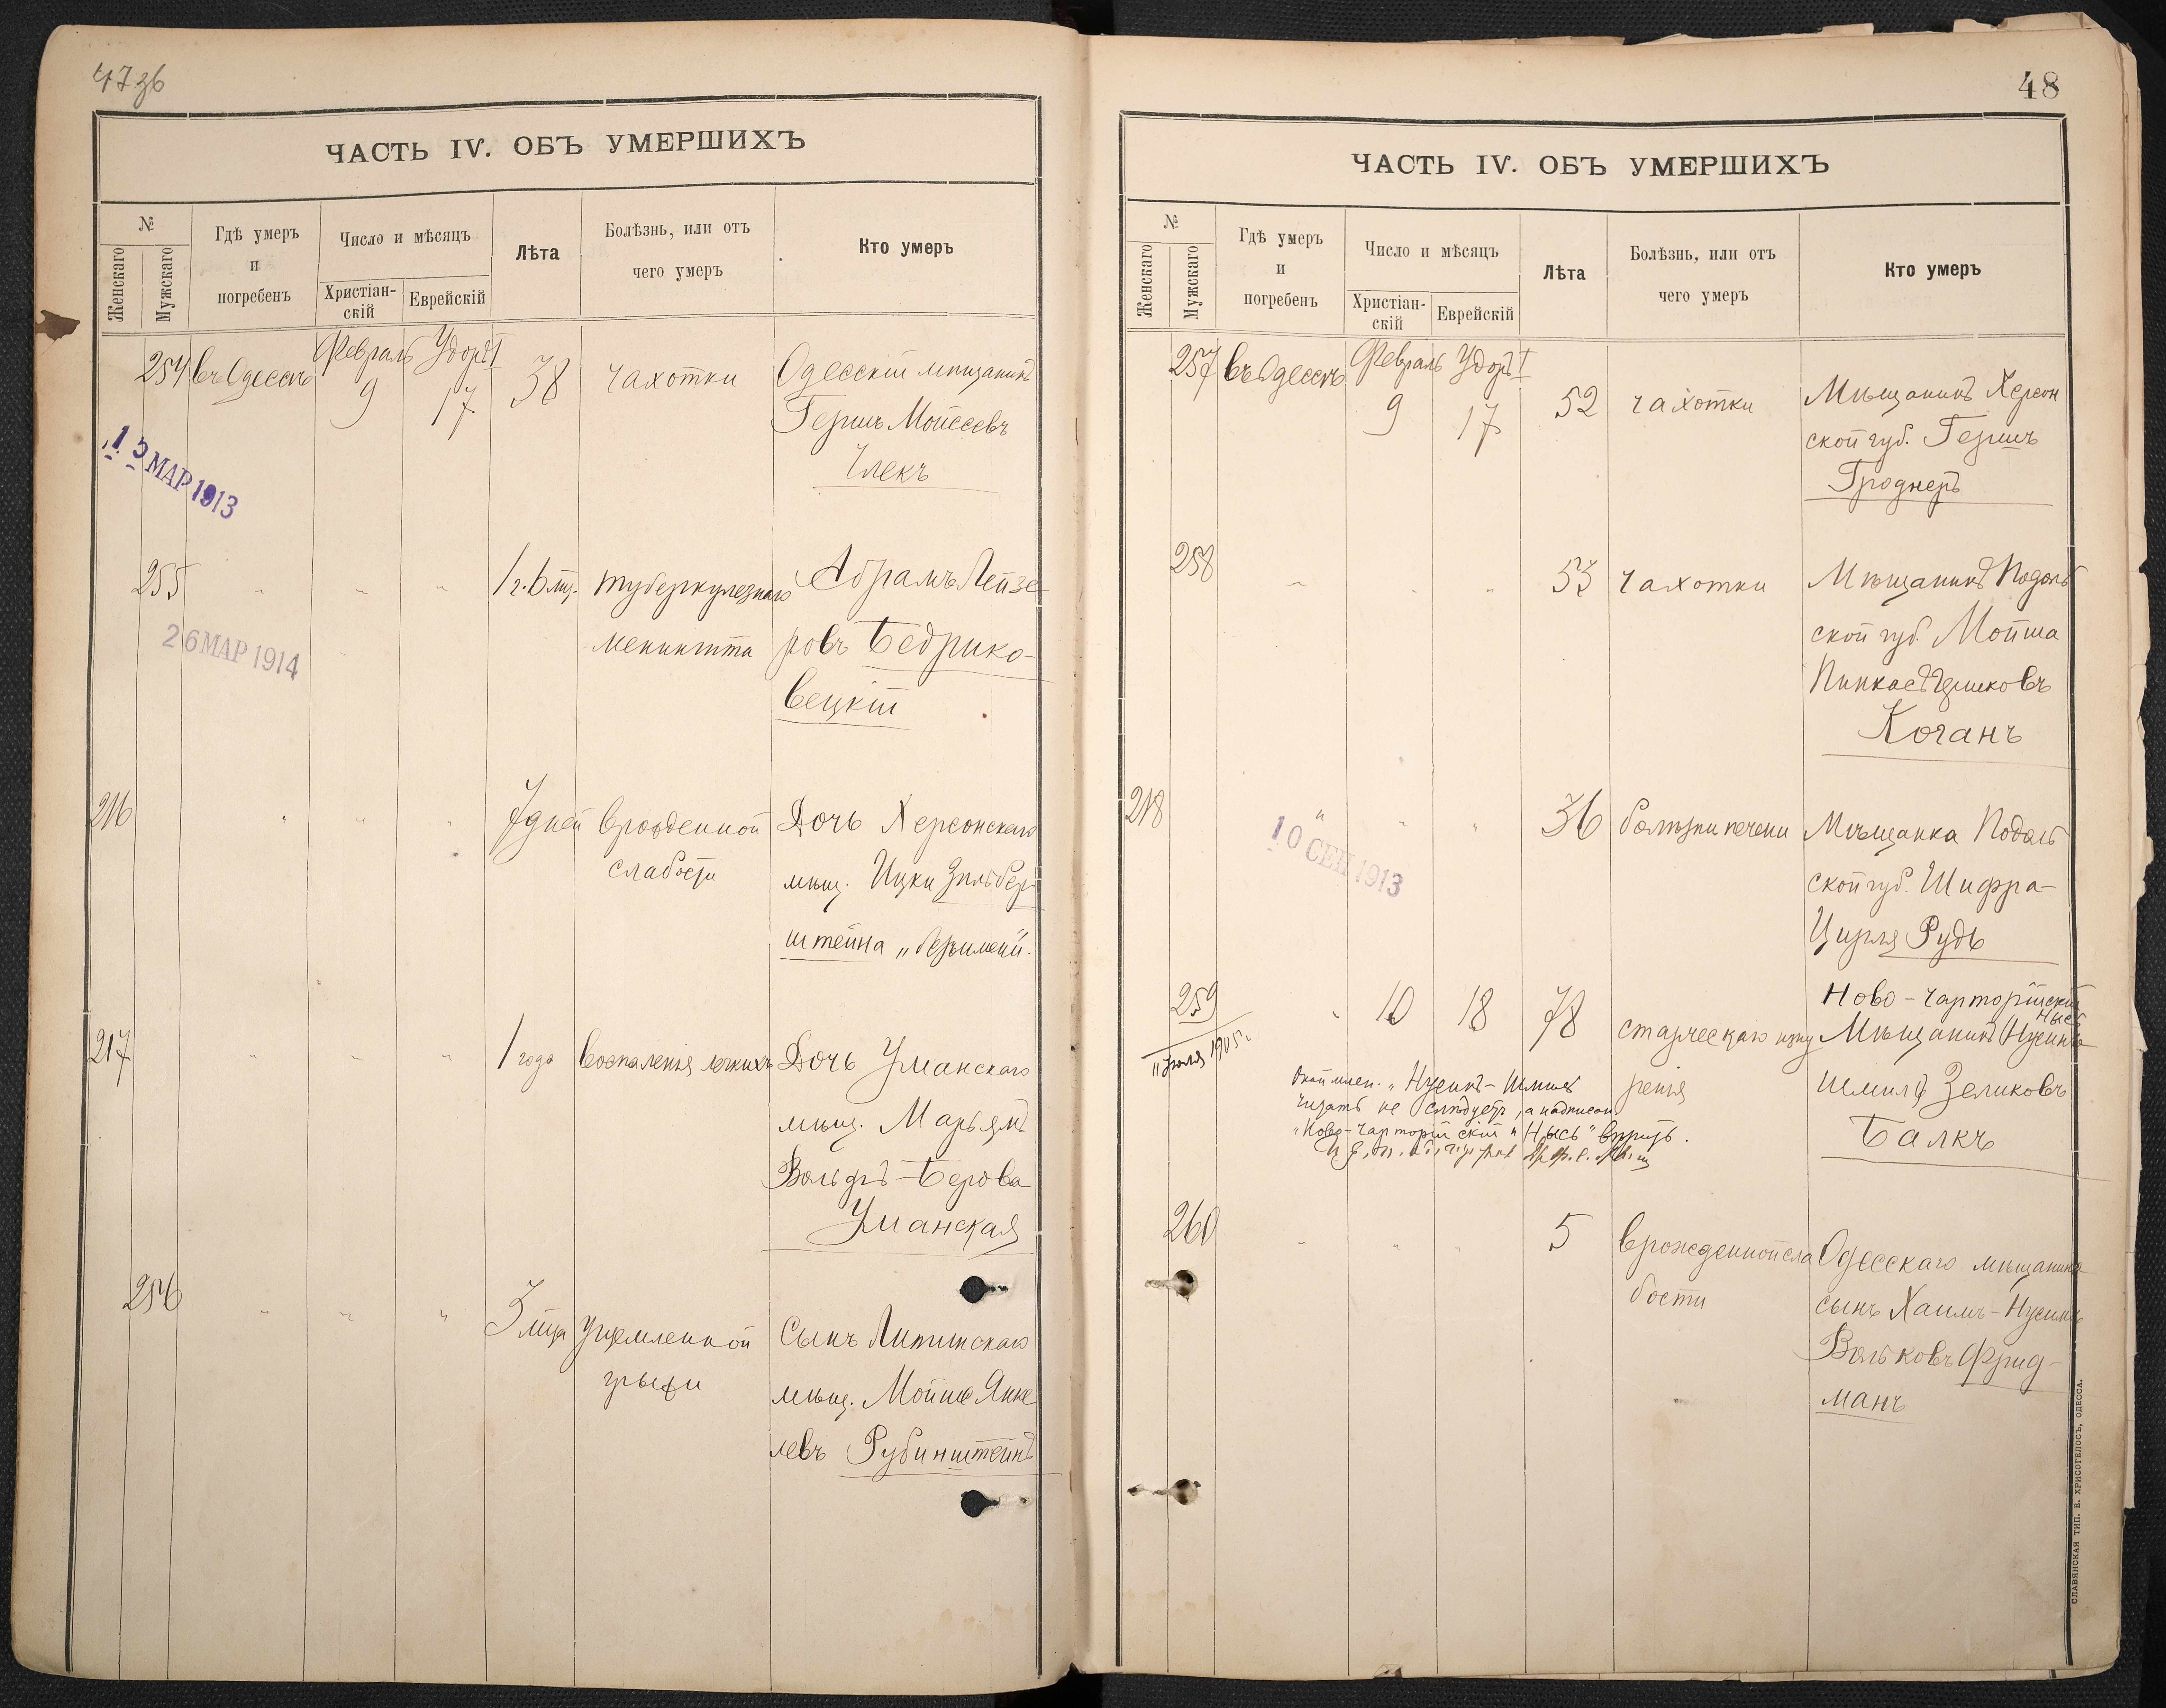 47 зв
ЧАСТЬ IV. ОБЪ УМЕРШИХЪ
№
Женскаго
Мужскаго
Гдѣ умеръ
и
погребенъ
Число и мѣсяцъ
Христіан-
скій
Еврейскій
Лѣта
Болѣзнь, или отъ
чего умеръ
Кто умеръ
254 въ Одессѣ Февраль 9 Удоръ I 17 38 чахотки Одесскій мѣщанинъ
Гершъ Мойсеевъ
Члекъ
15 МАР 1913
255 " " " 1 г. 6 мц. туберкулезнаго Абрамъ Лейзе-
менингита ровъ Бедрико-
вецкій
26 МАР 1914
216 " " " 7 дней врожденной Дочь Херсонскаго
слабости мѣщ. Ицки Зильбер-
штейна
217 " " " 1 года воспаленія легкихъ Дочь Уманскаго
мѣщ. Марьямъ
Вольфъ-Берова
Уманская
256 " " " 3 мца ущемленной Сынъ Литинскаго
грыжи мѣщ. Мойше Янке
левъ Рубинштейнъ
48
ЧАСТЬ IV. ОБЪ УМЕРШИХЪ
№
Женскаго
Мужскаго
Гдѣ умеръ
и
погребенъ
Число и мѣсяцъ
Христіан-
скій
Еврейскій
Лѣта
Болѣзнь, или отъ
чего умеръ
Кто умеръ
257 въ Одессѣ Февраль 9 Удоръ I 17 52 чахотки Мѣщанинъ Херсон
ской губ. Гершъ
Гроднеръ
258 " " " 53 чахотки Мѣщанинъ Подоль
ской губ. Мойша
Пинкасъ Гершковъ
Коганъ
218 " " " 36 болѣзни печени Мѣщанка Подоль
ской губ. Шифра-
Цирля Рудь
10 СЕН 1913
259 " 10 18 78 старческаго изну Ново-Чарторійскій
Нысь
Мѣщанинъ Нусинъ
ренія Шмилъ Зеликовъ
Балкъ
" Іюля 1905 г.
"Нусинъ-Шмилъ"
читать не слѣдуетъ, а надписан.
"Ново-Чарторійскій" "Нысь" вѣрить.
260 " " " 5 врожденной сла Одесскаго мѣщанина
бости сынъ Хаимъ-Нусинъ
Вольковъ Фрид-
манъ
СЛАВЯНСКАЯ ТИП. Е. ХРИСОГЕЛОСЪ, ОДЕССА.